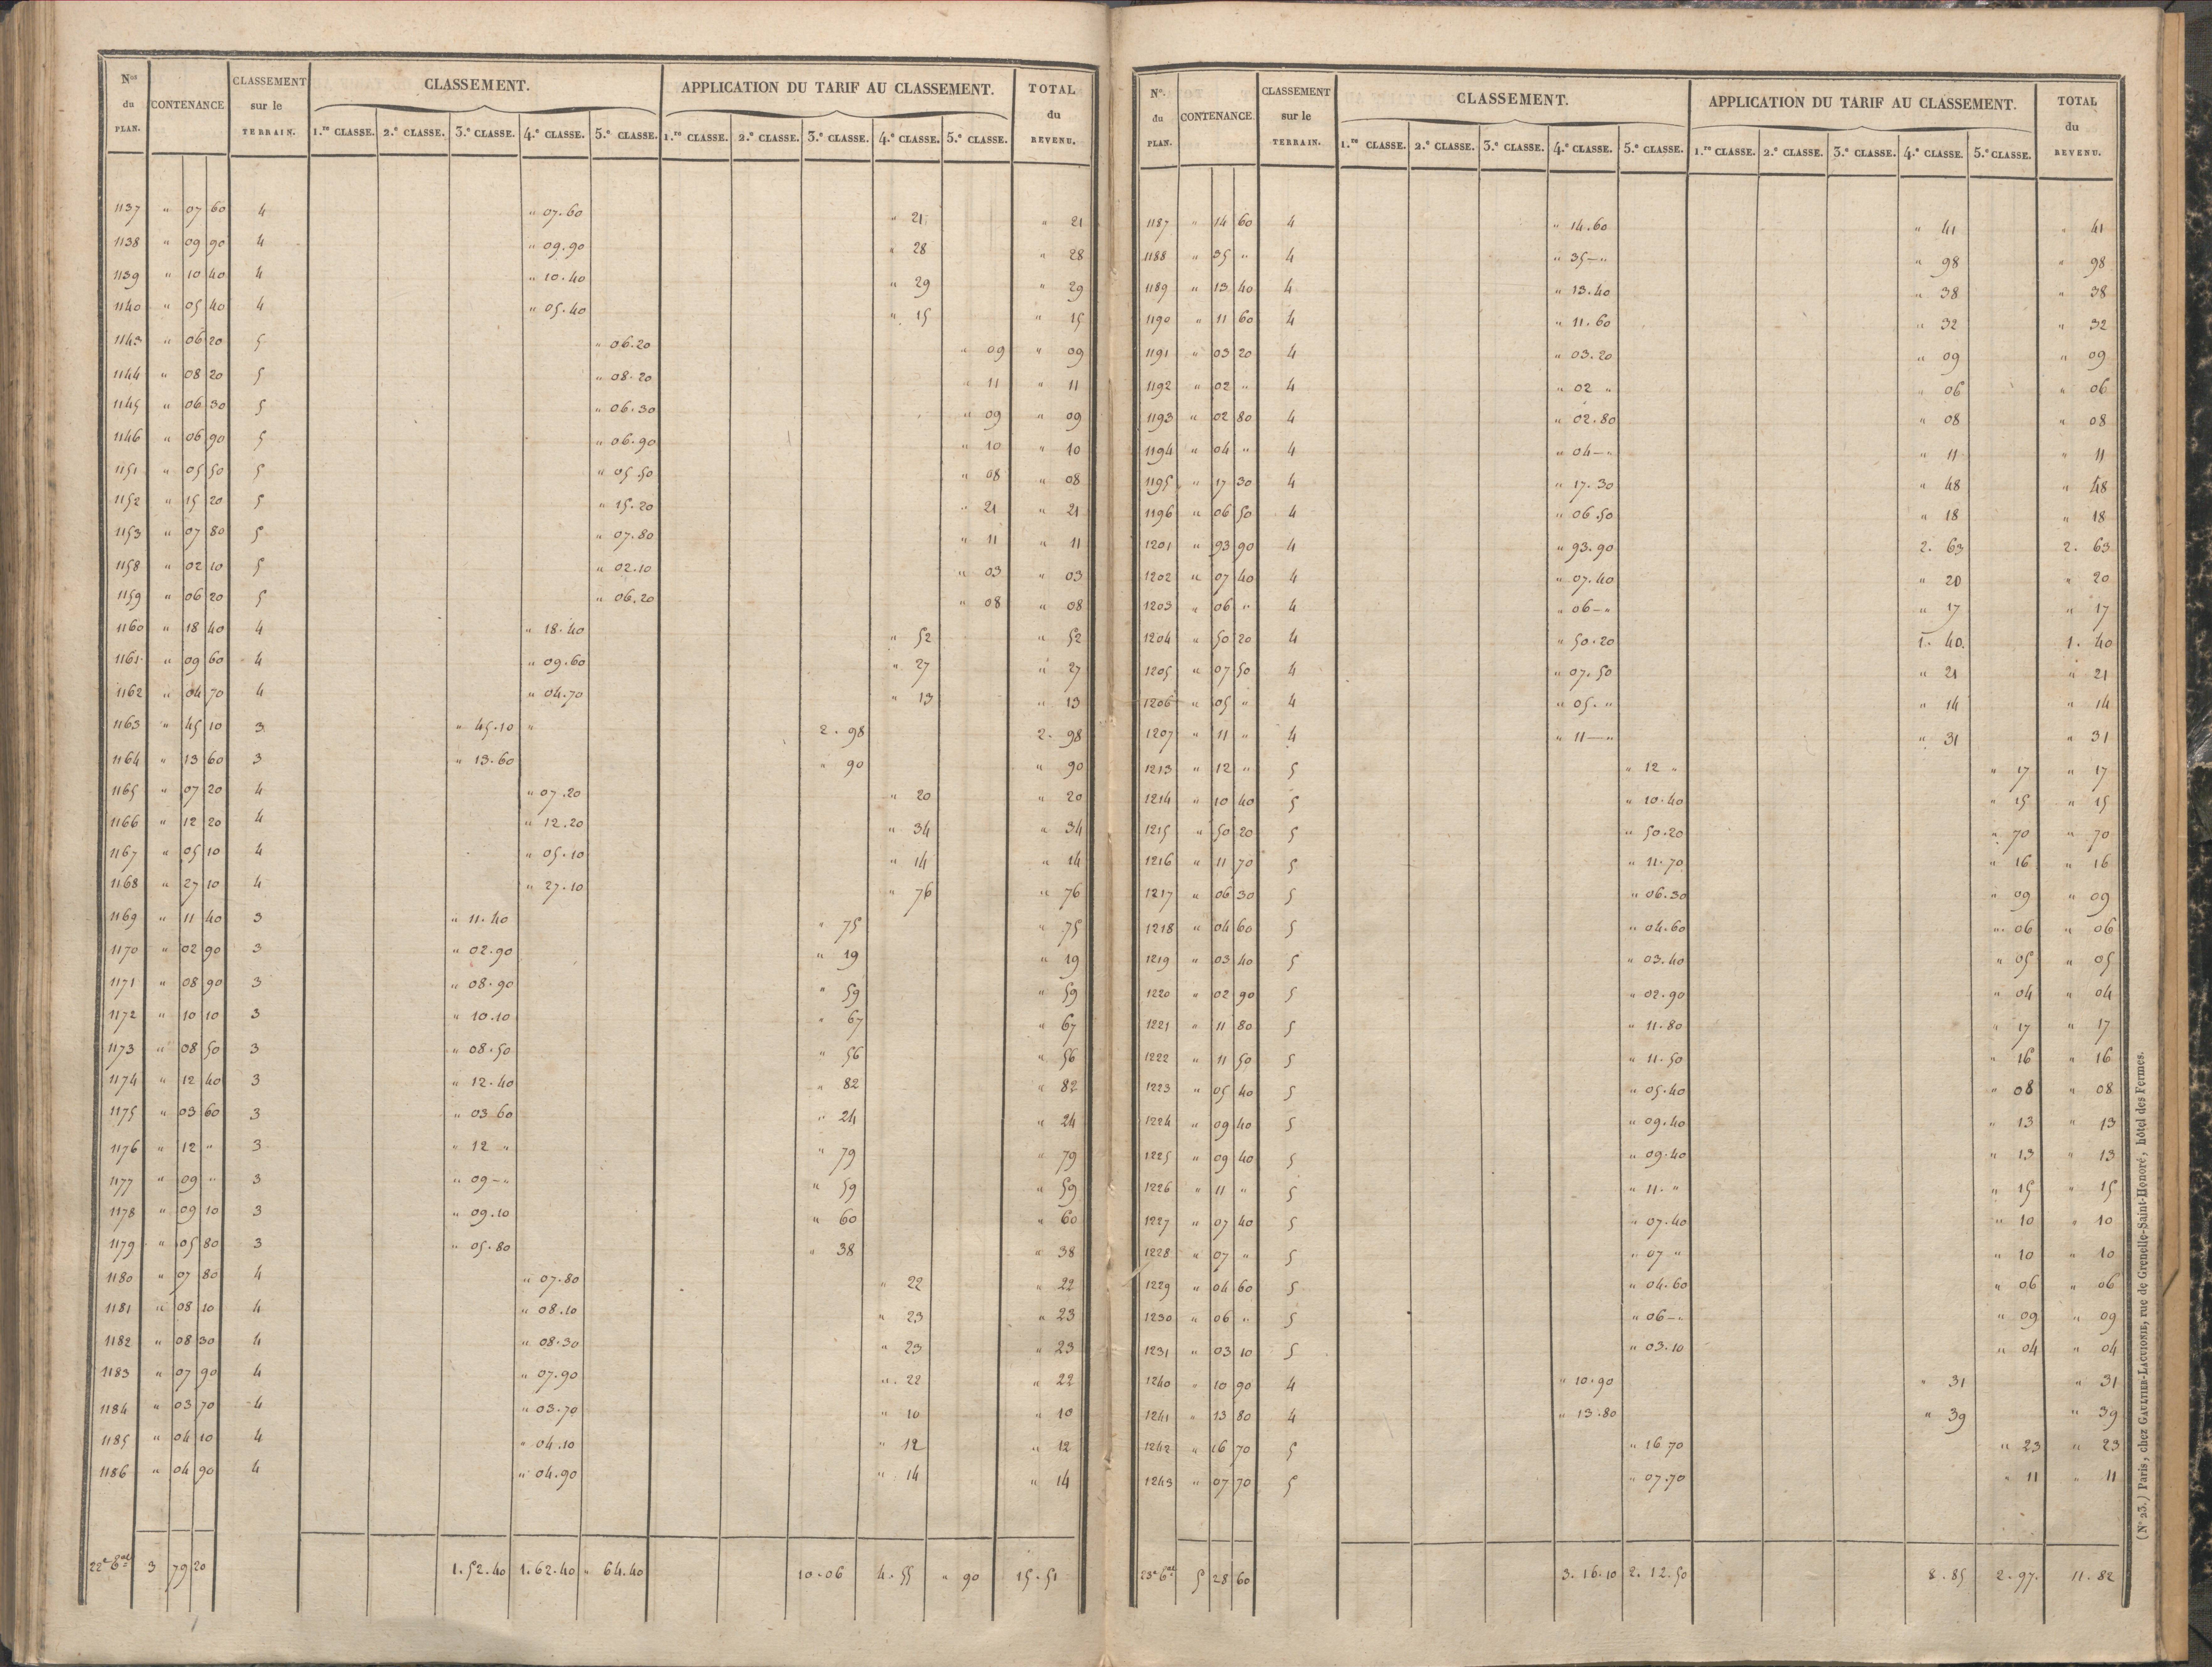 Nos du PLAN. CONTENANCE CLASSEMENT sur le TERRAIN. CLASSEMENT. APPLICATION DU TARIF AU CLASSEMENT. TOTAL du REVENU.
1.re CLASSE. 2.e CLASSE. 3.e CLASSE. 4.e CLASSE. 5.e CLASSE. 1.re CLASSE. 2.e CLASSE. 3.e CLASSE. 4.e CLASSE. 5.e CLASSE.
1137 " 07 60 4 " 07.60 " 21 " 21
1138 " 09 90 4 " 09.90 " 28 " 28
1139 " 10 40 4 " 10.40 " 29 " 29
1140 " 05 40 4 " 05.40 " 15 " 15
1143 " 06 20 5 " 06.20 " 09 " 09
1144 " 08 20 5 " 08.20 " 11 " 11
1145 " 06 30 5 " 06.30 " 09 " 09
1146 " 06 90 5 " 06.90 " 10 " 10
1151 " 05 50 5 " 05.50 " 08 " 08
1152 " 15 20 5 " 15.20 " 21 " 21
1153 " 07 80 5 " 07.80 " 11 " 11
1158 " 02 10 5 " 02.10 " 03 " 03
1159 " 06 20 5 " 06.20 " 08 " 08
1160 " 18 40 4 " 18.40 " 52 " 52
1161 " 09 60 4 " 09.60 " 27 " 27
1162 " 04 70 4 " 04.70 " 13 " 13
1163 " 45 10 3 " 45.10 " 2. 98 2. 98
1164 " 13 60 3 " 13.60 " 90 " 90
1165 " 07 20 4 " 07.20 " 20 " 20
1166 " 12 20 4 " 12.20 " 34 " 34
1167 " 05 10 4 " 05.10 " 14 " 14
1168 " 27 10 4 " 27.10 " 76 " 76
1169 " 11 40 3 " 11.40 " 75 " 75
1170 " 02 90 3 " 02.90 " 19 " 19
1171 " 08 90 3 " 08.90 " 59 " 59
1172 " 10 10 3 " 10.10 " 67 " 67
1173 " 08 50 3 " 08.50 " 56 " 56
1174 " 12 40 3 " 12.40 " 82 " 82
1175 " 03 60 3 " 03 60 " 24 " 24
1176 " 12 " 3 " 12 " " 79 " 79
1177 " 09 " 3 " 09-" " 59 " 59
1178 " 09 10 3 " 09.10 " 60 " 60
1179 " 05 80 3 " 05.80 " 38 " 38
1180 " 07 80 4 " 07.80 " 22 " 22
1181 " 08 10 4 " 08.10 " 23 " 23
1182 " 08 30 4 " 08.30 " 23 " 23
1183 " 07 90 4 " 07.90 " 22 " 22
1184 " 03 70 4 " 03.70 " 10 " 10
1185 " 04 10 4 " 04.10 " 12 " 12
1186 " 04 90 4 " 04.90 " 14 " 14
22e 3 79 20 1.52.40 1.62.40 " 64.40 10.06 4.55 " 90 15.51
No. du PLAN. CONTENANCE. CLASSEMENT sur le TERRAIN. CLASSEMENT. APPLICATION DU TARIF AU CLASSEMENT. TOTAL du REVENU.
1.re CLASSE. 2.e CLASSE. 3.e CLASSE. 4.e CLASSE. 5.e CLASSE. 1.re CLASSE. 2.e CLASSE. 3.e CLASSE. 4.e CLASSE. 5.e CLASSE.
1187 " 14 60 4 " 14.60 " 41 " 41
1188 " 35 " 4 " 35-" " 98 " 98
1189 " 13 40 4 " 13.40 " 38 " 38
1190 " 11 60 4 " 11.60 " 32 " 32
1191 " 03 20 4 " 03.20 " 09 " 09
1192 " 02 " 4 " 02 " " 06 " 06
1193 " 02 80 4 " 02.80 " 08 " 08
1194 " 04 " 4 " 04-" " 11 " 11
1195 " 17 30 4 " 17.30 " 48 " 48
1196 " 06 50 4 " 06.50 " 18 " 18
1201 " 93 90 4 " 93.90 2. 63 2. 63
1202 " 07 40 4 " 07.40 " 20 " 20
1203 " 06 " 4 " 06-" " 17 " 17
1204 " 50 20 4 " 50.20 1. 40. 1. 40
1205 " 07 50 4 " 07.50 " 21 " 21
1206 " 05 " 4 " 05. " " 14 " 14
1207 " 11 " 4 " 11-" " 31 " 31
1213 " 12 " 5 " 12 " " 17 " 17
1214 " 10 40 5 " 10.40 " 15 " 15
1215 " 50 20 5 " 50.20 " 70 " 70
1216 " 11 70 5 " 11.70 " 16 " 16
1217 " 06 30 5 " 06.30 " 09 " 09
1218 " 04 60 5 " 04.60 " 06 " 06
1219 " 03 40 5 " 03.40 " 05 " 05
1220 " 02 90 5 " 02.90 " 04 " 04
1221 " 11 80 5 " 11.80 " 17 " 17
1222 " 11 50 5 " 11.50 " 16 " 16
1223 " 05 40 5 " 05.40 " 08 " 08
1224 " 09 40 5 " 09.40 " 13 " 13
1225 " 09 40 5 " 09.40 " 13 " 13
1226 " 11 " 5 " 11. " " 15 " 15
1227 " 07 40 5 " 07.40 " 10 " 10
1228 " 07 " 5 " 07 " " 10 " 10
1229 " 04 60 5 " 04.60 " 06 " 06
1230 " 06 " 5 " 06-" " 09 " 09
1231 " 03 10 5 " 03.10 " 04 " 04
1240 " 10 90 4 " 10.90 " 31 " 31
1241 " 13 80 4 " 13.80 " 39 " 39
1242 " 16 70 5 " 16 70 " 23 " 23
1243 " 07 70 5 " 07.70 " 11 " 11
23e 5 28 60 3.16.10 2.12.50 8.85 2.97. 11.82
(No 23.) Paris, chez GAULTIER-LAGUIONIE, rue de Grenelle-Saint-Honoré, hôtel des Fermes.